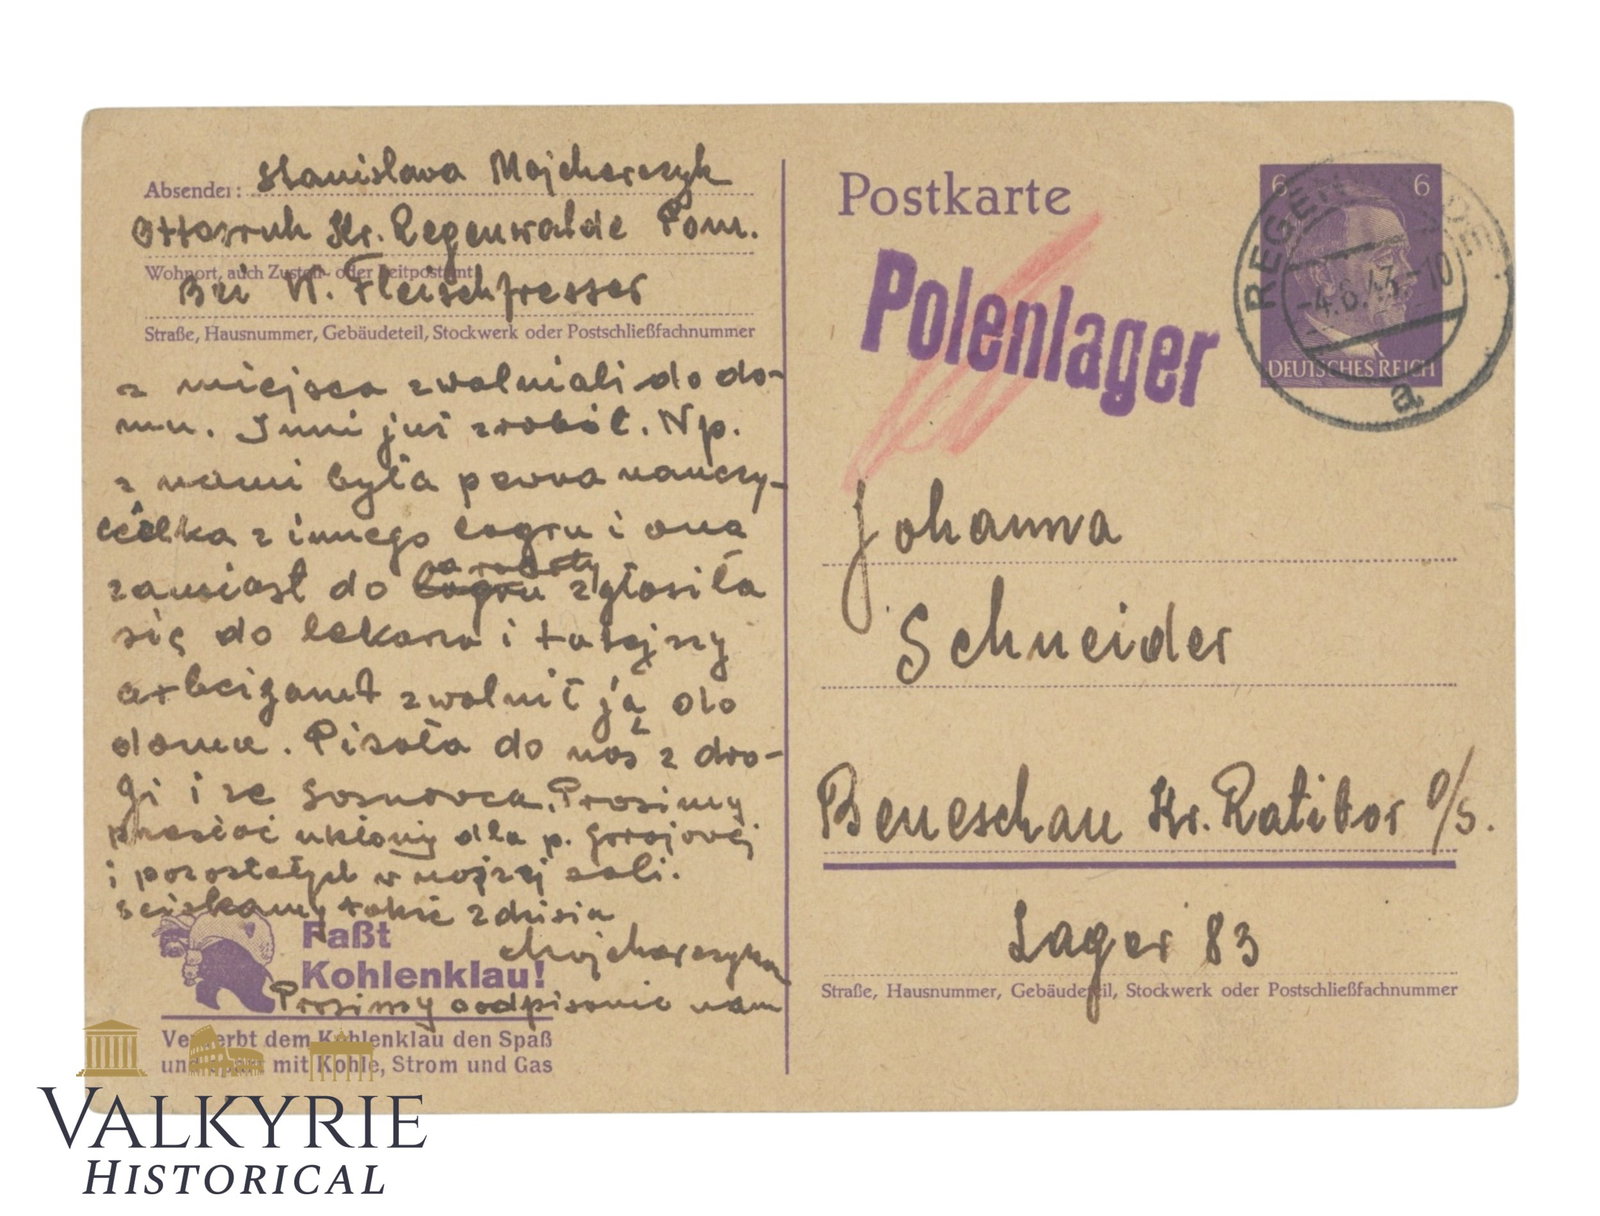 Absender: Stanisława Majcherczyk
Ottosruh Kr. Regenwalde Pom.
Wohnort, auch Zustell- oder Leitpostamt
Bei W. Fleischfresser
Straße, Hausnummer, Gebäudeteil, Stockwerk oder Postschließfachnummer
z miejsca zwalniali do do-
mu. Inni już z robót. Np.
z nami była pewna nauczy-
cielka z innego lagru i ona
zamiast do roboty zgłosiła
się do lekarza i tutejszy
arbeizamt zwolnił ją do
domu. Pisała do nas z dro-
gi i ze Sosnowca. Prosimy
ukłony dla p.
i pozostałych w naszej sali.
Ściskamy także Zdzisia
Majcherczyka
Prosimy o odpisanie nam
Faßt
Kohlenklau!
Verderbt dem Kohlenklau den Spaß
und spart mit Kohle, Strom und Gas
Postkarte
Polenlager
6 6
DEUTSCHES REICH
REGENWALDE
-4.6.43.-10
a
Johanna
Schneider
Beneschau Kr. Ratibor O/S.
Lager 83
Straße, Hausnummer, Gebäudeteil, Stockwerk oder Postschließfachnummer
VALKYRIE
HISTORICAL